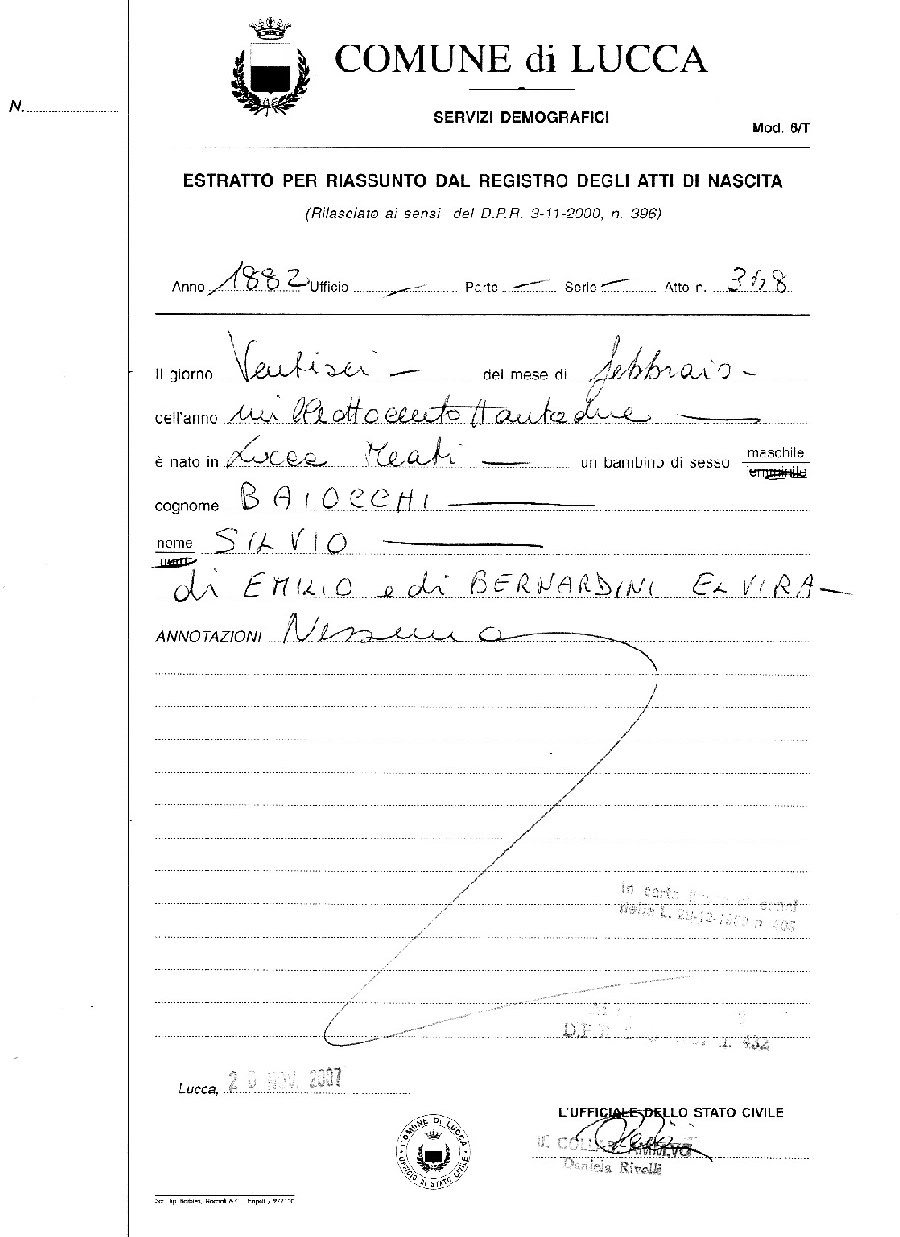 COMUNE di LUCCA
N.
SERVIZI DEMOGRAFICI
Mod. 6/T
ESTRATTO PER RIASSUNTO DAL REGISTRO DEGLI ATTI DI NASCITA
(Rilasciato ai sensi del D.P.R. 3-11-2000, n. 396)
Anno 1882 Ufficio — Parte — Serie — Atto n. 368
Il giorno Ventisei — del mese di febbraio -
dell'anno milleottocentottantadue —
è nato in Lucca Meati — un bambino di sesso maschile
cognome BAIOCCHI —
nome SILVIO —
di EMILIO e di BERNARDINI ELVIRA —
ANNOTAZIONI Nessuna
In carta
D.P.R. n. 432
Lucca, 20 NOV. 2007
L'UFFICIALE DELLO STATO CIVILE
COMUNE DI LUCCA
UFFICIO DI STATO CIVILE
Daniela Rivelli